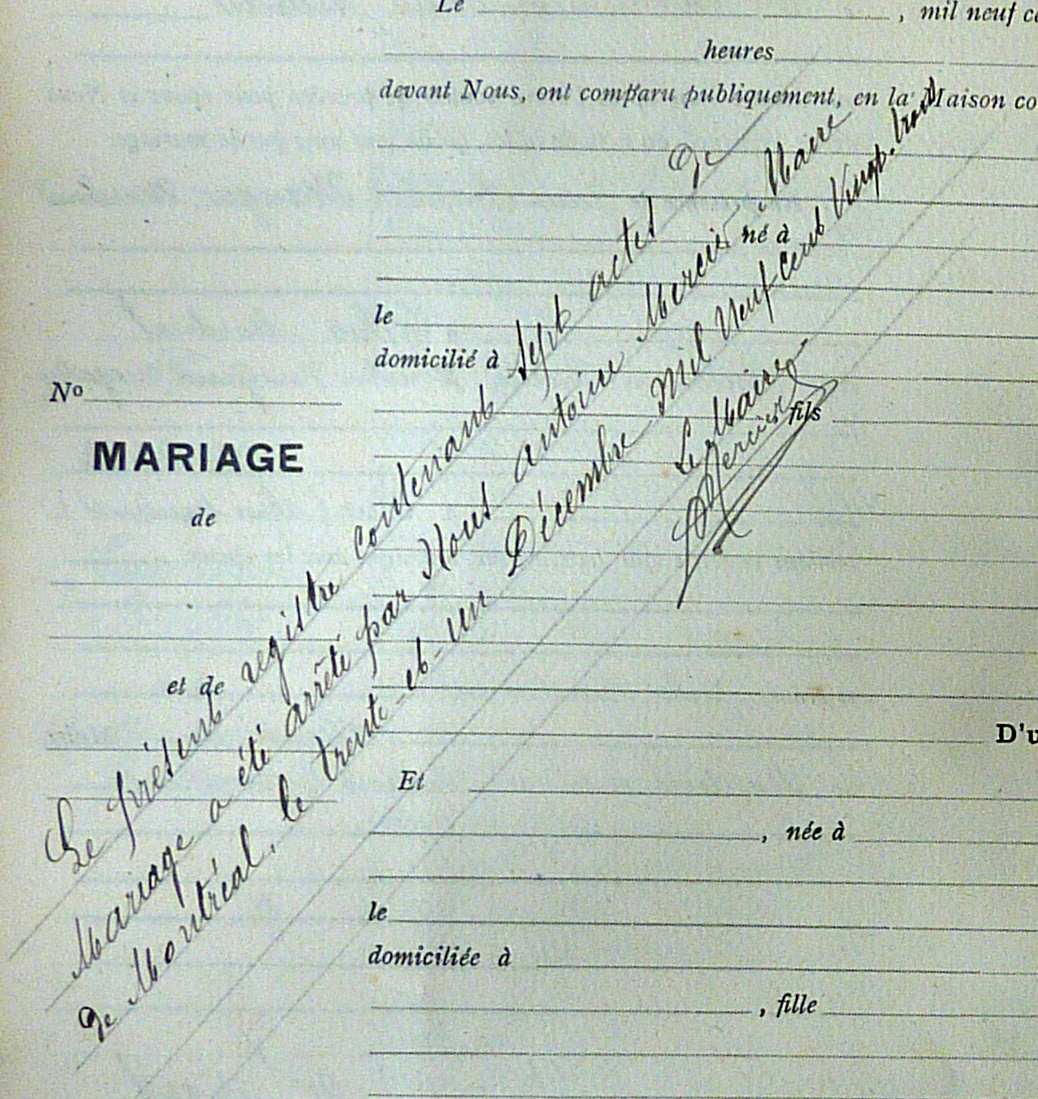 Le , mil neuf ce
heures
devant Nous, ont comparu publiquement, en la Maison co
né à
le
domicilié à
No
fils
MARIAGE
de
et de
D'u
Et
, née à
le
domiciliée à
, fille
Le présent registre contenant Sept actes de
Mariage a été arrêté par Nous Antoine Mercier Maire
de Montréal, le trente-et-un Décembre Mil Neuf Cent Vingt-trois
Le Maire
Mercier